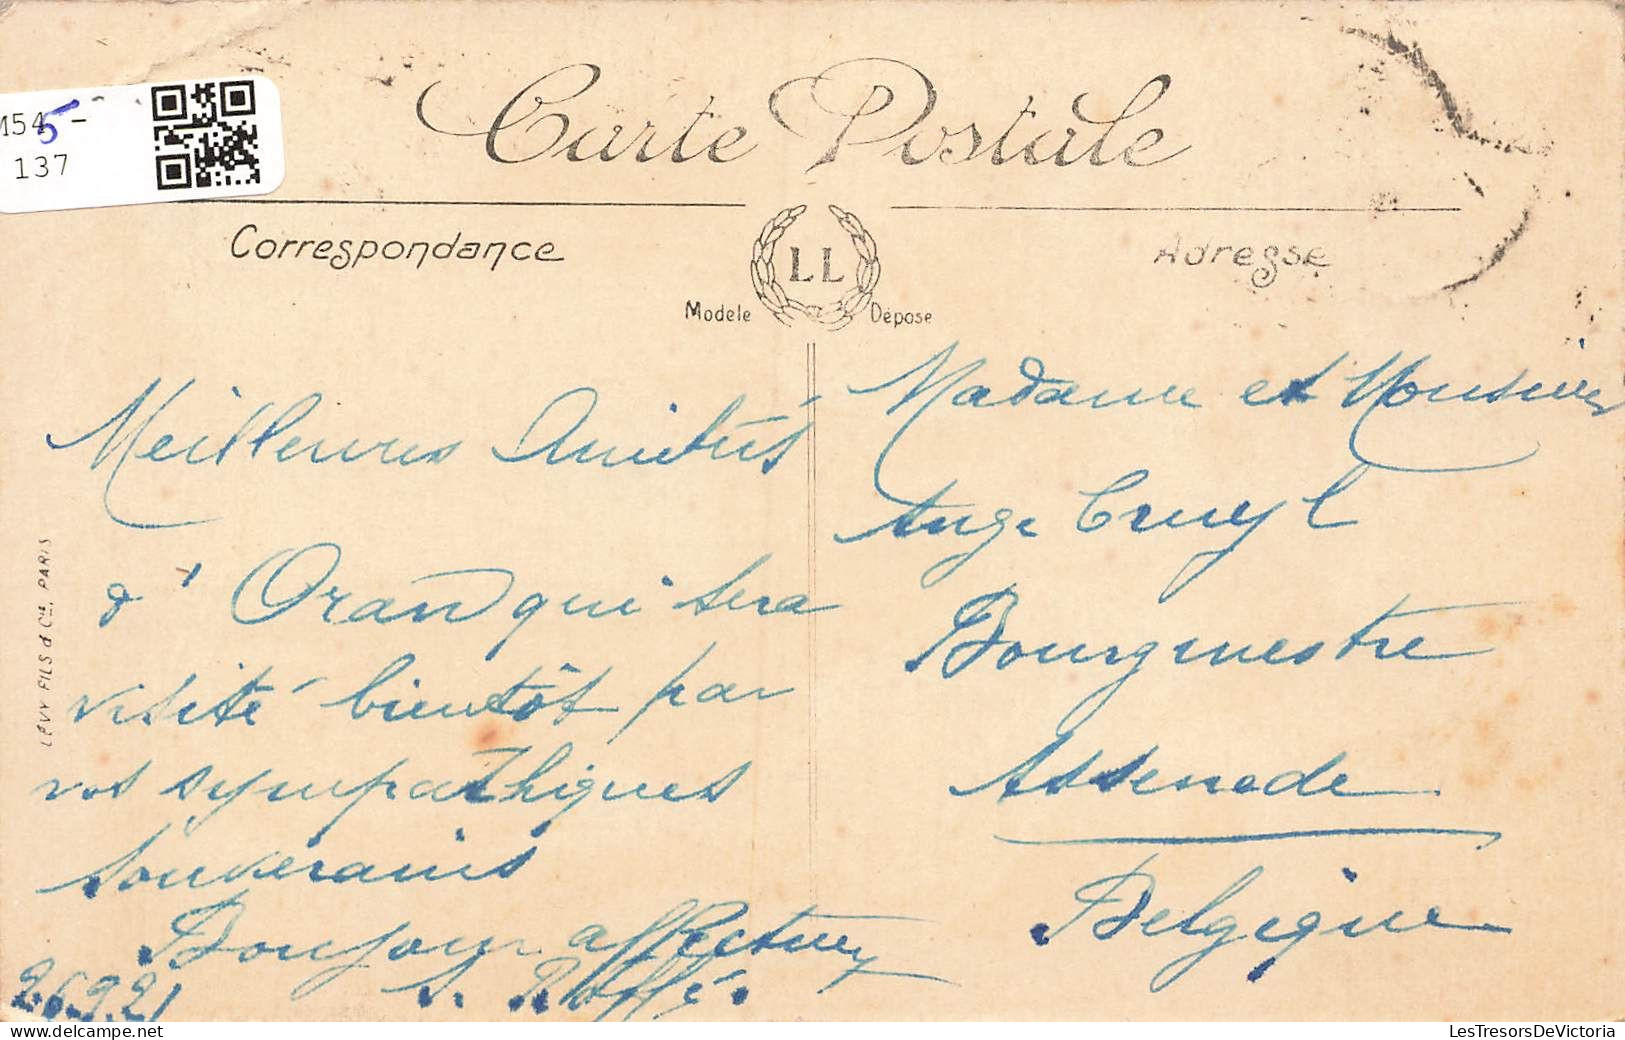 M545 -
137
Carte Postale
Correspondance
LL
Adresse
Modèle Déposé
Meilleures Amitiés
d'Oran qui sera
visité bientôt par
vos sympathiques
Souverains
Bonjour affectueux
26.9.21
Madame et Monsieur
Ange Cruyl
Bourgmestre
Assenede
Belgique
LÉVY FILS & Cie, PARIS
LesTresorsDeVictoria